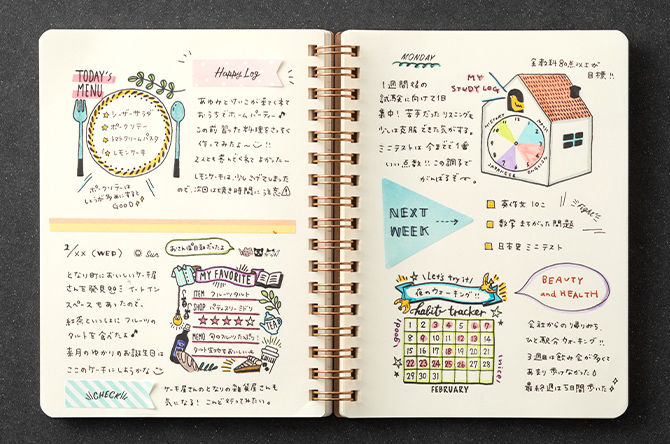 TODAY'S
MENU
シーザーサラダ
ポークソテー
トマトクリームパスタ
レモンケーキ
ポークソテーは
しょうが多めにすると
GOOD♪
Happy Log
あゆみとけいこが
おうちでホームパーティー♪
この前習った料理をさっそく
作ってみたよ〜
2人とも喜んでくれてよかった〜
レモンケーキは、少しこげてしまった
ので、次回は焼き時間に注意
2/XX (WED)
Sun
おさんぽ日和だったよ
となり町においしいケーキ屋
さんを発見!! イートイン
スペースもあったので、
紅茶といっしょにフルーツの
タルトを食べたよ♪
来月のゆかりのお誕生日は
ここのケーキにしようかな
MY FAVORITE
ITEM フルーツタルト
SHOP パティスリーミドリ
★★★★☆
MEMO 旬のフルーツたっぷり!
タルト生地もおいしい
TEA
CHECK!!
ケーキ屋さんのとなりの雑貨屋さんも
気になる! こんど行ってみたい。
MONDAY
全教科80点以上が
目標!!
MY
STUDY LOG
1週間後の
試験に向けて1日
集中! 苦手だったリスニングも
少しは克服できた気がする。
ミニテストは今までで1番
いい点数!! この調子で
がんばるぞ〜。
HISTORY
MATH
ENGLISH
JAPANESE
NEXT
WEEK
英作文 10こ
数学 まちがった問題
日本史 ミニテスト
Fight!!
Let's try it!
夜のウォーキング!!
habits tracker
good!
nice!
1 2 3 4 5 6 7
8 9 10 11 12 13 14
15 16 17 18 19 20 21
22 23 24 25 26 27 28
29 30 31
FEBRUARY
BEAUTY
and HEALTH
会社からの帰りから、
ひと駅分ウォーキング!!
3週目は飲み会が多くて
あまり歩けなかった
最終週は5日間歩いた